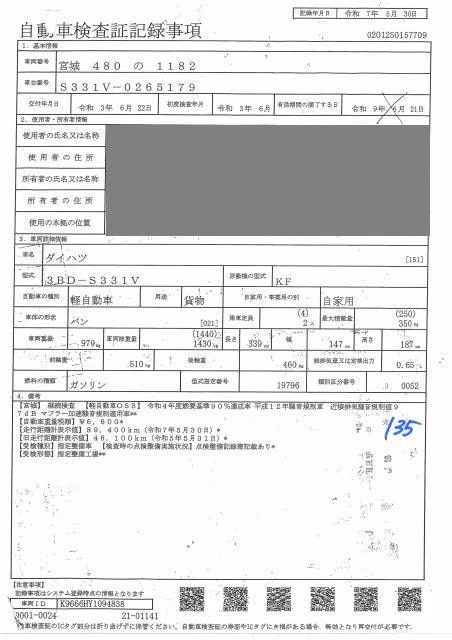 記録年月日 令和 7年 5月 30日
自動車検査証記録事項
0201250157709
1．基本情報
車両番号 宮城 480 の 1182
車台番号 S331V-0265179
交付年月日 令和 3年 6月 22日 初度検査年月 令和 3年 6月 有効期間の満了する日 令和 9年 6月 21日
2．使用者・所有者情報
使用者の氏名又は名称
使用者の住所
所有者の氏名又は名称
所有者の住所
使用の本拠の位置
3．車両詳細情報
車名 ダイハツ [151]
型式 3BD-S331V 原動機の型式 KF
自動車の種別 軽自動車 用途 貨物 自家用・事業用の別 自家用
車体の形状 バン [021] 乗車定員 (4) 2人 最大積載量 (250) 350kg
車両重量 970kg 車両総重量 (1440) 1430kg 長さ 339cm 幅 147cm 高さ 187cm
前軸重 510kg 後軸重 460kg 総排気量又は定格出力 0.65L
燃料の種類 ガソリン 型式指定番号 19796 類別区分番号 0052
4．備考
[宮城] 継続検査 【軽自動車OSS】 令和4年度燃費基準90%達成車 平成12年騒音規制車 近接排気騒音規制値9
7dB マフラー加速騒音規制適用車**
[自動車重量税額] ¥6,600*
[走行距離計表示値] 89,400km (令和7年5月30日)*
[旧走行距離計表示値] 46,100km (令和5年5月31日)*
[受検種別] 指定整備車 [検査時の点検整備実施状況] 点検整備記録簿記載あり*
[受検形態] 指定整備工場**
135
【注意事項】
記録事項はシステム登録時点の情報となります
車両ID K9666HY1094838
9001-0024 21-01141
自動車検査証のICタグ部分は折り曲げずに保管ください。自動車検査証の券面やICタグにき損がある場合、無効となり再交付が必要です。